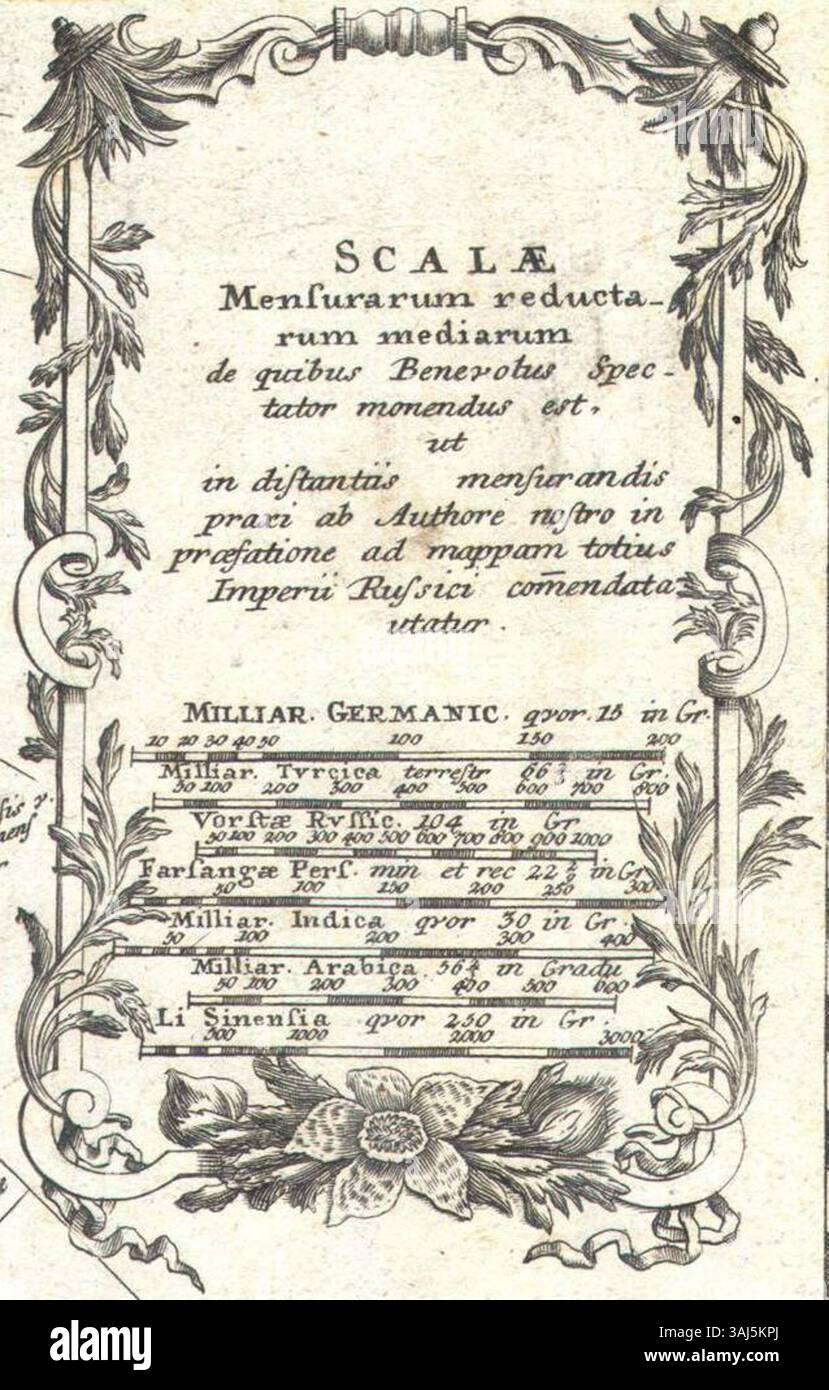 SCALÆ
Menſurarum reducta-
rum mediarum
de quibus Benevolus Spec-
tator monendus est,
ut
in diſtantiis menſurandis
praxi ab Authore noſtro in
præfatione ad mappam totius
Imperii Ruſsici com̄endata
utatur.
MILLIAR. GERMANIC. qvor. 15 in Gr.
10 20 30 40 50 100 150 200
Milliar. Tvrcica terreſtr 66⅔ in Gr.
50 100 200 300 400 500 600 700 800
Vorſtæ Rvſſic. 104 in Gr
50 100 200 300 400 500 600 700 800 900 1000
Farſangæ Perſ. min et rec 22 in Gr
50 100 150 200 250 300
Milliar. Indica qvor 30 in Gr.
50 100 200 300 400
Milliar. Arabica 56 in Gradu
50 100 200 300 400 500 600
Li Sinenſia qvor 250 in Gr.
500 1000 2000 3000
alamy
Image ID: 3AJ5KPJ
www.alamy.com